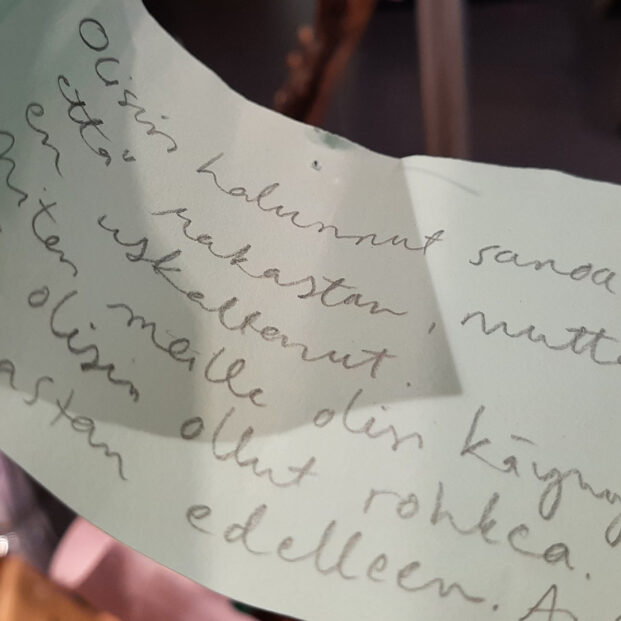 Olisin halunnut sanoa
että rakastan, mutta
en uskaltanut.
Miten meille olisi käyny
olisin ollut rohkea.
astan edelleen. A